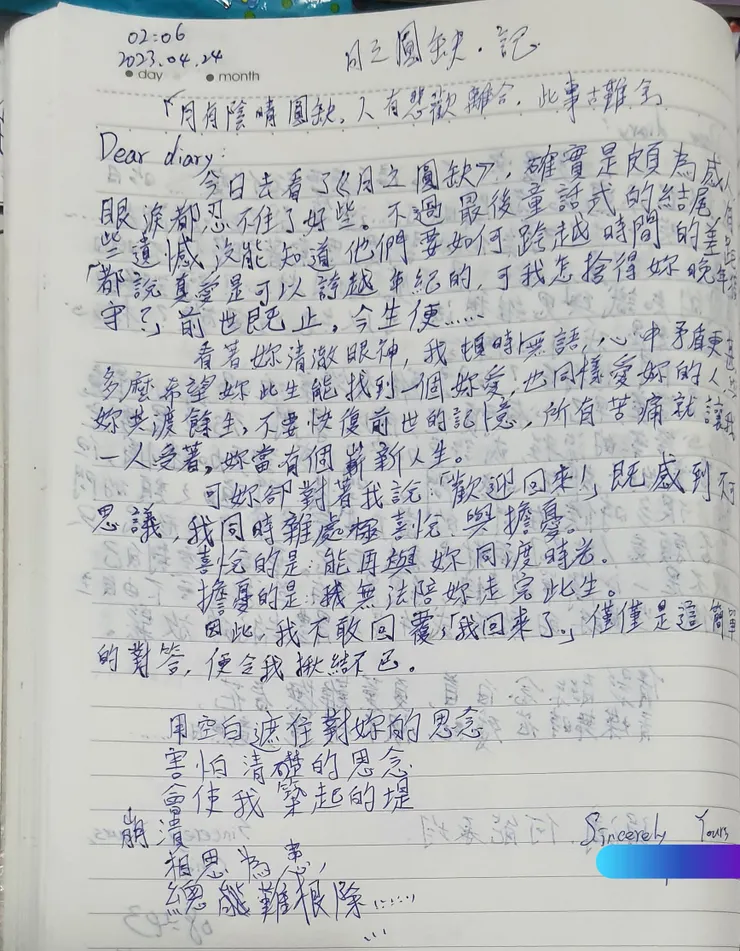 02:06
2023.04.24
day month
月之圓缺.記
「月有陰晴圓缺,人有悲歡離合,此事古難全」
Dear diary:
今日去看了《月之圓缺》,確實是頗為感人,
眼淚都忍不住了好些。不過最後童話式的結尾有
些遺憾,沒能知道他們要如何跨越時間的差距。
「都說真愛是可以誇越年紀的,可我怎捨得妳晚年
守?」前世既止,今生便……
看著妳清澈眼神,我頓時無語,心中矛盾更
多麼希望妳此生能找到一個妳愛,也同樣愛妳的人
妳共渡餘生,不要恢復前世的記憶,所有苦痛就讓我
一人受著,妳當有個嶄新人生。
可妳卻對著我說:「歡迎回來!」既感到不可
思議,我同時雜處極喜悅與擔憂。
喜悅的是:能再與妳同渡時光。
擔憂的是:我無法陪妳走完此生。
因此,我不敢回覆「我回來了。」僅僅是這簡單
的對答,便令我揪結不已。
用空白遮住對妳的思念
害怕清礎的思念
會使我築起的堤
崩潰
相思為患,
總能難根除……
…
Sincerely Yours